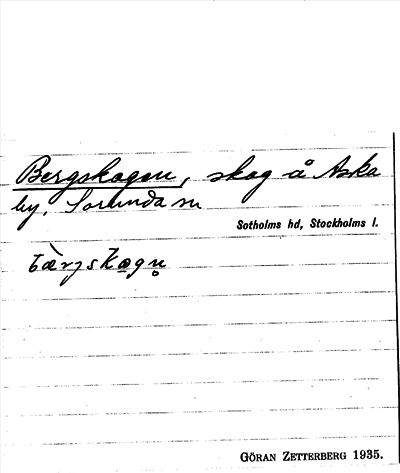 Bergskogen, skog å Aska
by, Sorunda sn
Sotholms hd, Stockholms l.
bæ̀rjskogn̥
GÖRAN ZETTERBERG 1935.